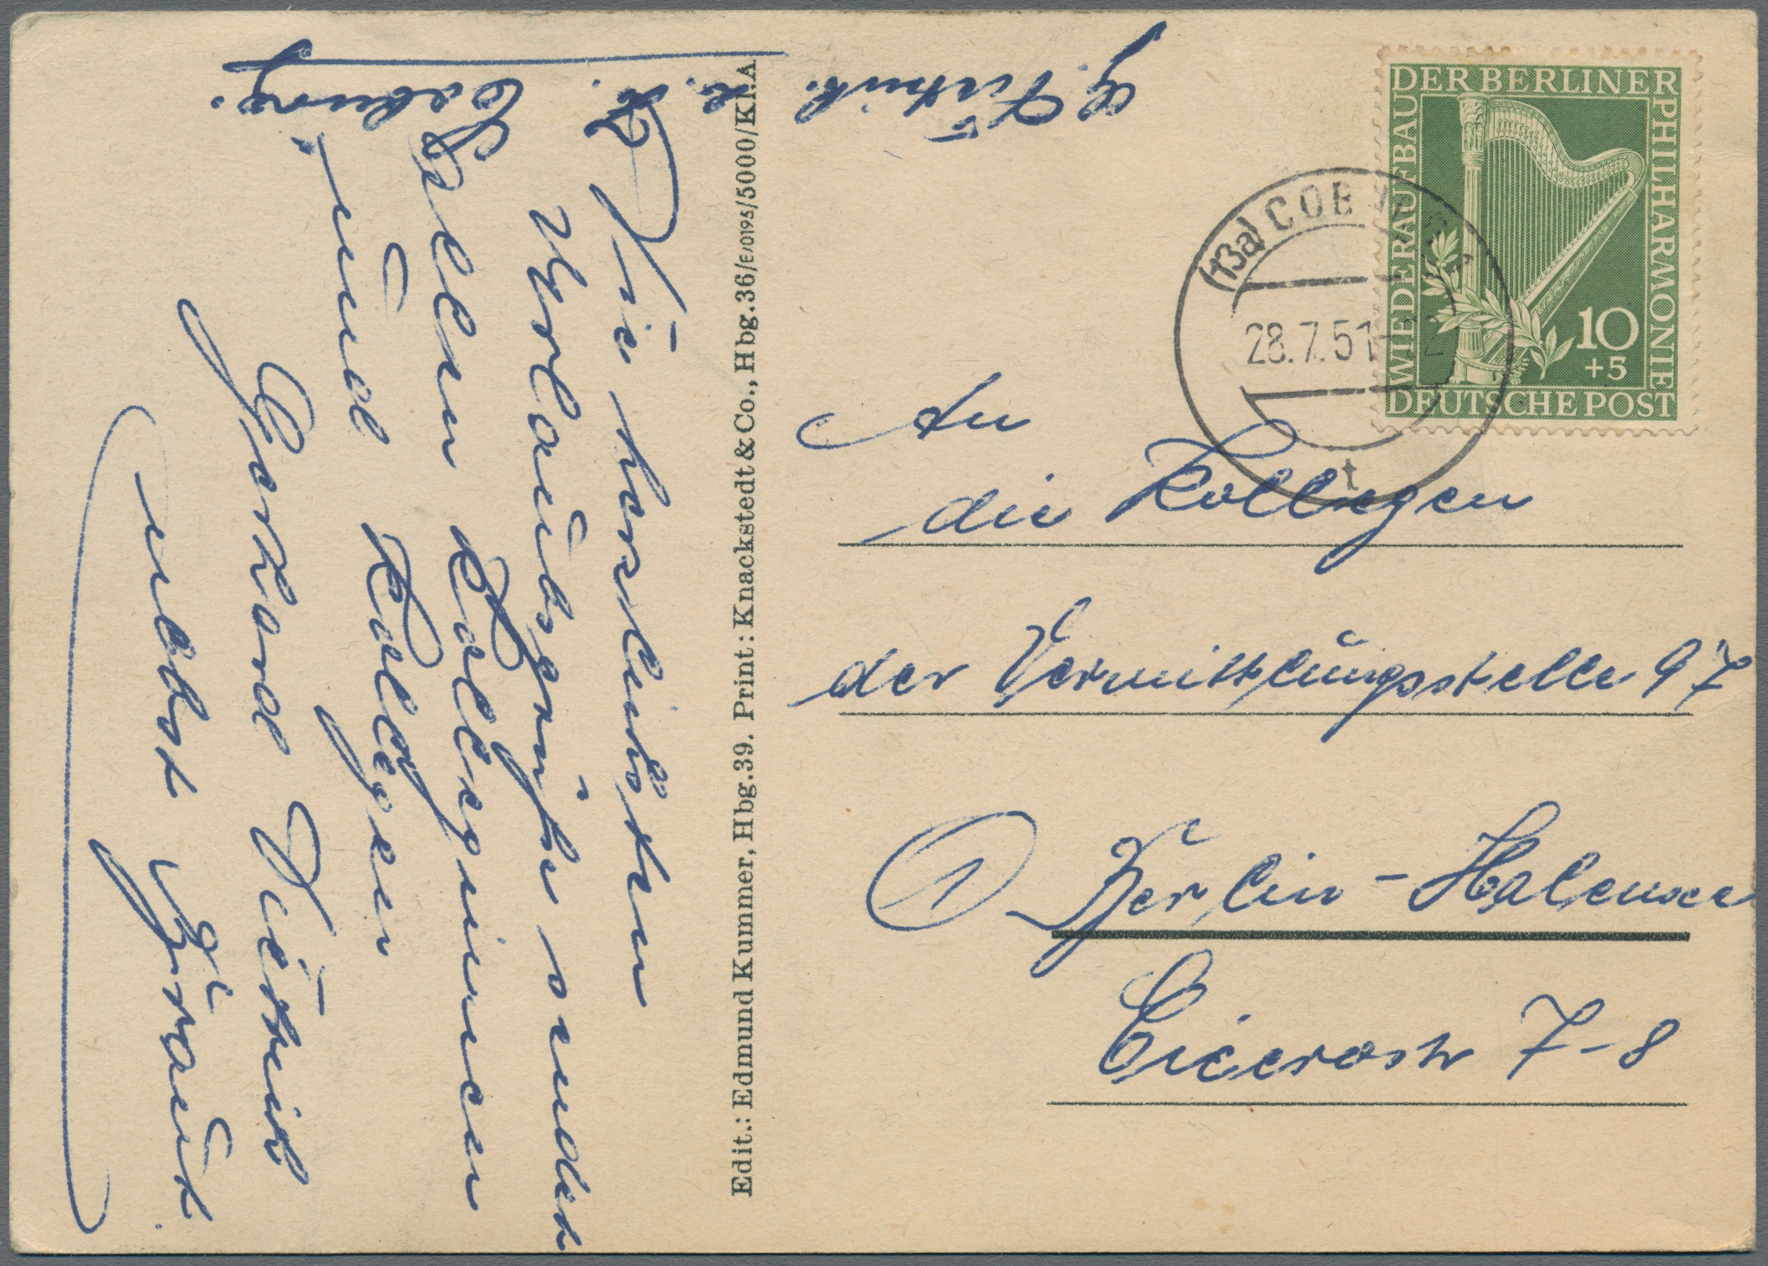 G. Dietrich.
z. Z.
Coburg.
Die herzlichsten
Urlaubsgrüße sendet
Allen Kolleginnen
und Kollegen
Gerhard Dietrich
nebst Braut
Edit.: Edmund Kummer, Hbg. 39. Print: Knackstedt & Co., Hbg. 36/E/0195/5000/KI.A
DER BERLINER
PHILHARMONIE
WIEDERAUFBAU
10
+5
DEUTSCHE POST
(13a) COBURG
28.7.51-12
t
An
die Kollegen
der Vermittlungsstelle 97
1 Berlin-Halensee
Cicerostr 7-8